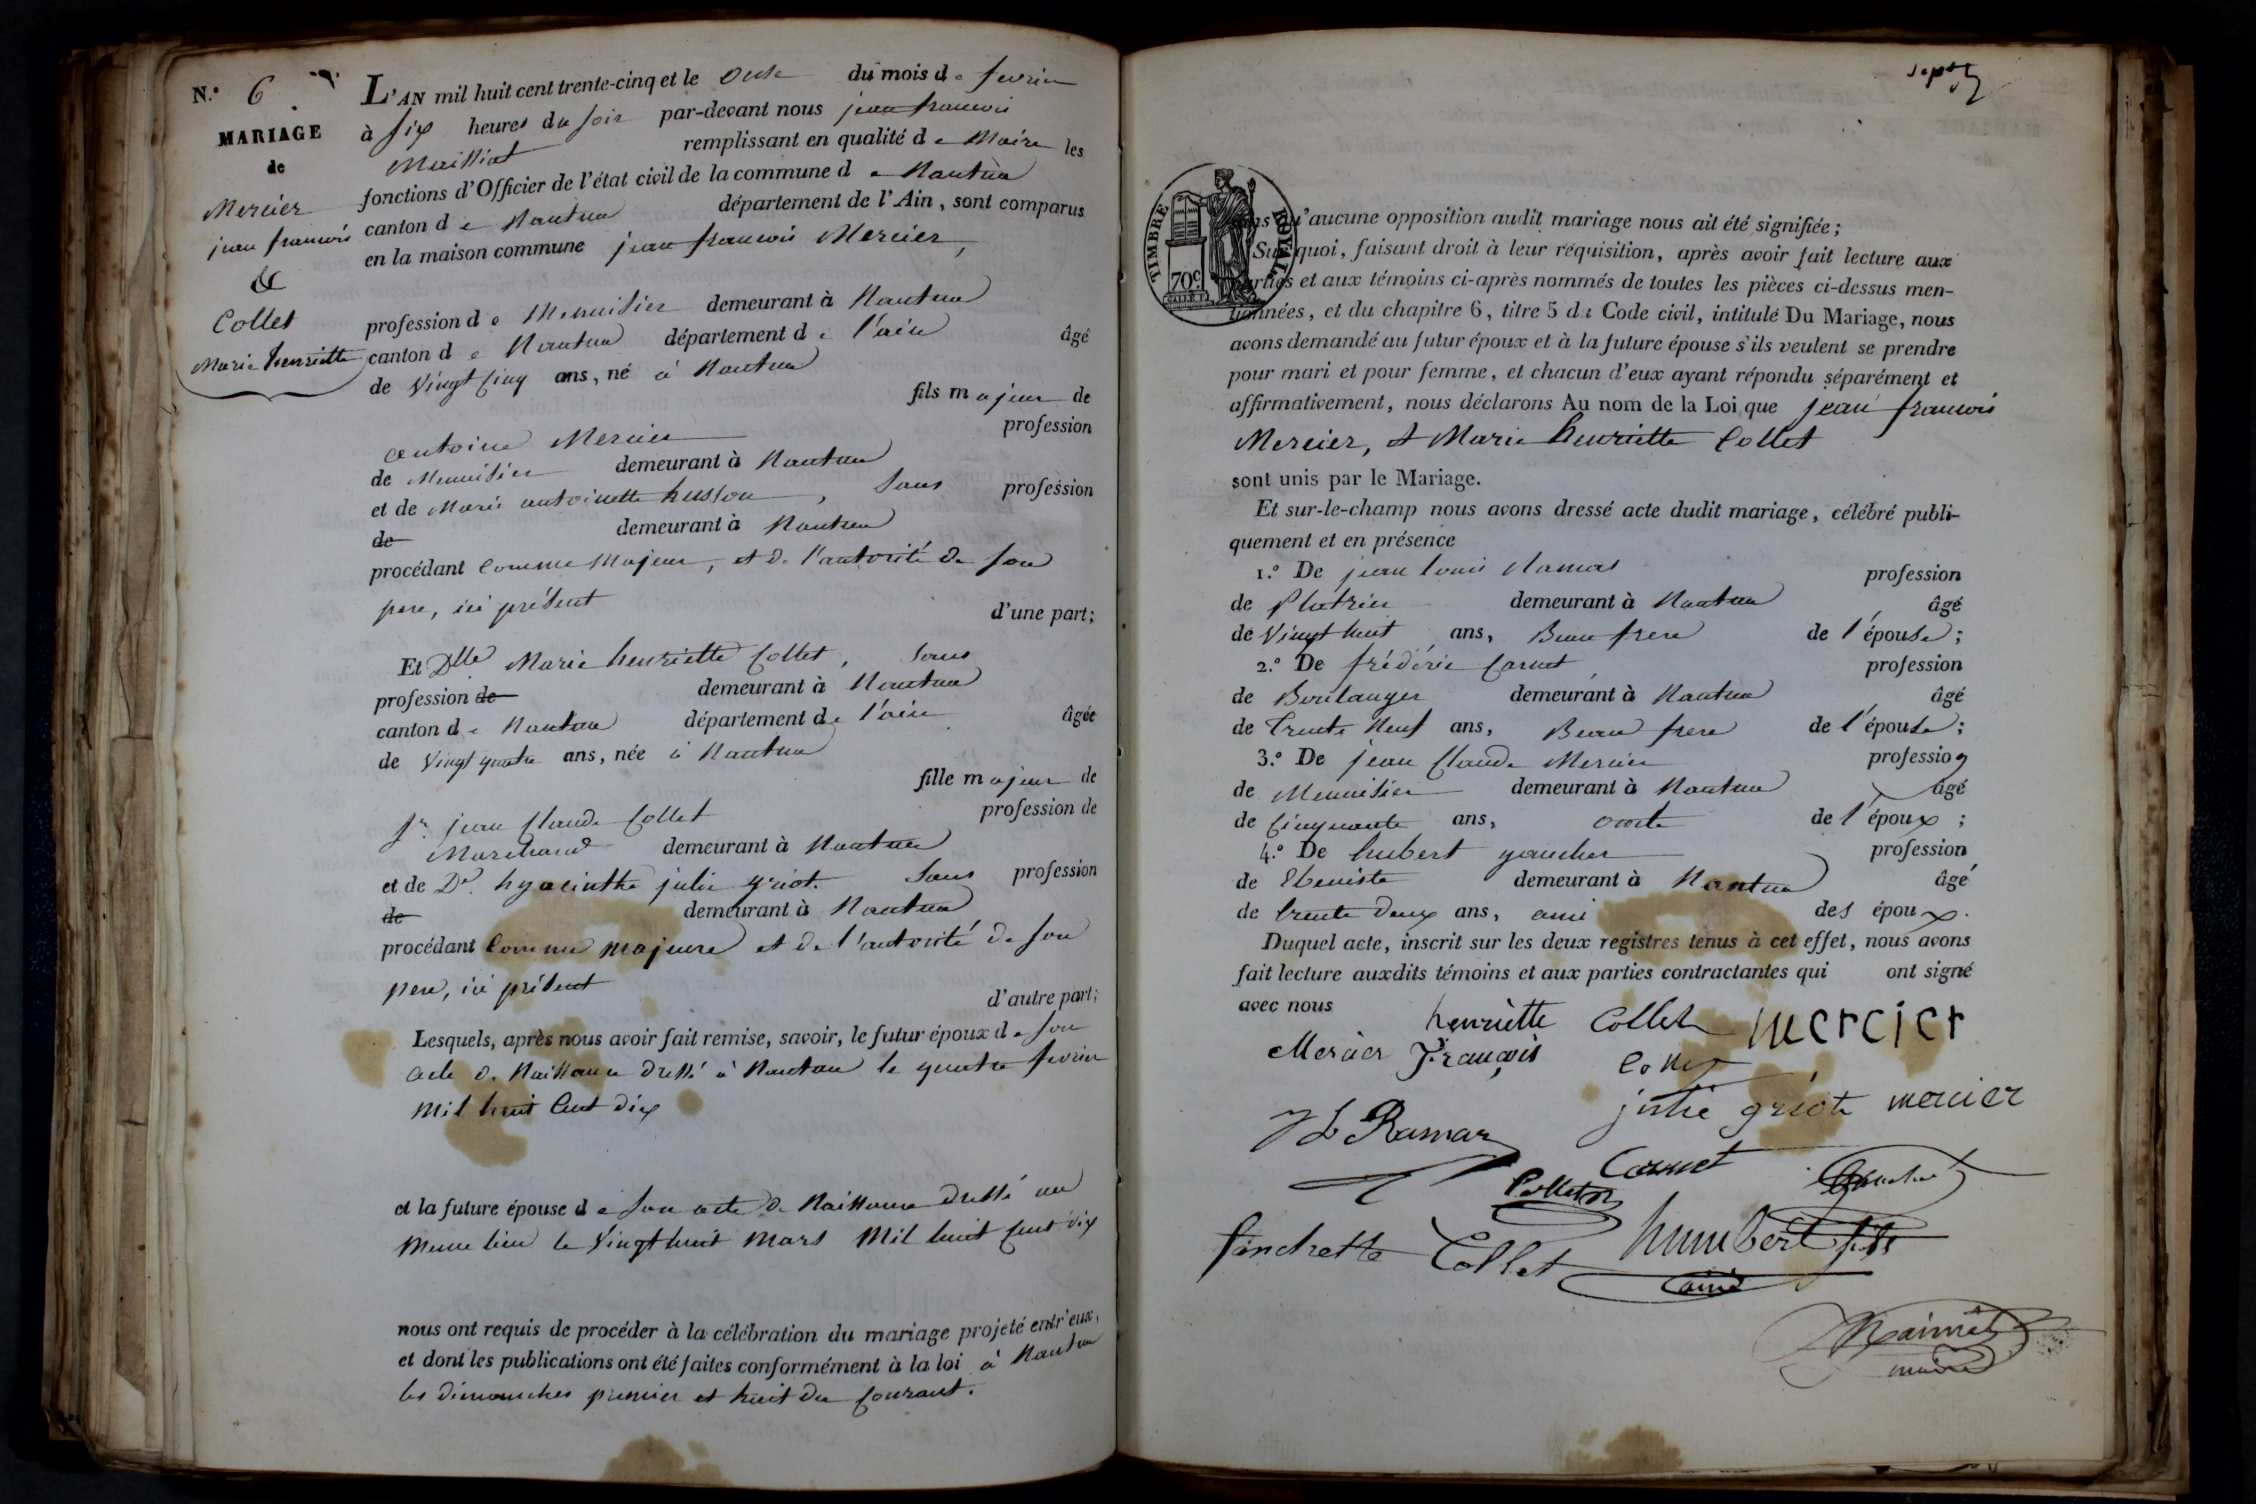 N.° 6
MARIAGE
de
Mercier
jean francois
&
Collet
Marie henriette
L'AN mil huit cent trente-cinq et le onse du mois de fevrier
à six heures du soir par-devant nous jean francois
Maissiat remplissant en qualité de Maire les
fonctions d'Officier de l'état civil de la commune de Nantua
canton de Nantua département de l'Ain, sont comparus
en la maison commune jean francois Mercier,
profession de Menuisier demeurant à Nantua
canton de Nantua département de l'ain âgé
de vingt cinq ans, né à Nantua
fils majeur de
antoine Mercier profession
de Menuisier demeurant à Nantua
et de Marie antoinette husson, sans profession
de demeurant à Nantua
procédant comme Majeur, et de l'autorité de son
pere, ici présent d'une part;
Et Dlle Marie henriette Collet, sans
profession de demeurant à Nantua
canton de Nantua département de l'ain âgée
de vingt quatre ans, née à Nantua
fille majeure de
Sr. jean Claude Collet profession de
Marchand demeurant à Nantua
et de De. hyacinthe julie griot. Sans profession
de demeurant à Nantua
procédant comme majeure et de l'autorité de son
pere, ici présent d'autre part;
Lesquels, après nous avoir fait remise, savoir, le futur époux de son
acte de Naissance dressé à Nantua le quatre fevrier
mil huit cent dix
et la future épouse de son acte de Naissance dressé au
meme lieu le vingt huit Mars Mil huit cent dix
nous ont requis de procéder à la célébration du mariage projeté entr'eux,
et dont les publications ont été faites conformément à la loi à Nantua
les dimanches premier et huit du courant.
sept
TIMBRE ROYAL
70c
sans qu'aucune opposition audit mariage nous ait été signifiée;
Sur quoi, faisant droit à leur réquisition, après avoir fait lecture aux
parties et aux témoins ci-après nommés de toutes les pièces ci-dessus men-
tionnées, et du chapitre 6, titre 5 du Code civil, intitulé Du Mariage, nous
avons demandé au futur époux et à la future épouse s'ils veulent se prendre
pour mari et pour femme, et chacun d'eux ayant répondu séparément et
affirmativement, nous déclarons Au nom de la Loi que jean francois
Mercier, et Marie henriette Collet
sont unis par le Mariage.
Et sur-le-champ nous avons dressé acte dudit mariage, célébré publi-
quement et en présence
1.° De jean louis Ramas profession
de Platrier demeurant à Nantua âgé
de vingt huit ans, Beau frere de l'épouse;
2.° De frédéric Carnet profession
de Boulanger demeurant à Nantua âgé
de trente neuf ans, Beau frere de l'épouse;
3.° De jean Claude Mercier profession
de Menuisier demeurant à Nantua âgé
de cinquante ans, oncle de l'époux;
4.° De hubert gaucher profession
de Ebeniste demeurant à Nantua âgé
de trente deux ans, ami des époux.
Duquel acte, inscrit sur les deux registres tenus à cet effet, nous avons
fait lecture auxdits témoins et aux parties contractantes qui ont signé
avec nous
henriette Collet mercier
Mercier François Collet
julie griot mercier
JL Ramas
Carnet
Collet
fanchette Collet humbert fils
ainé
maire